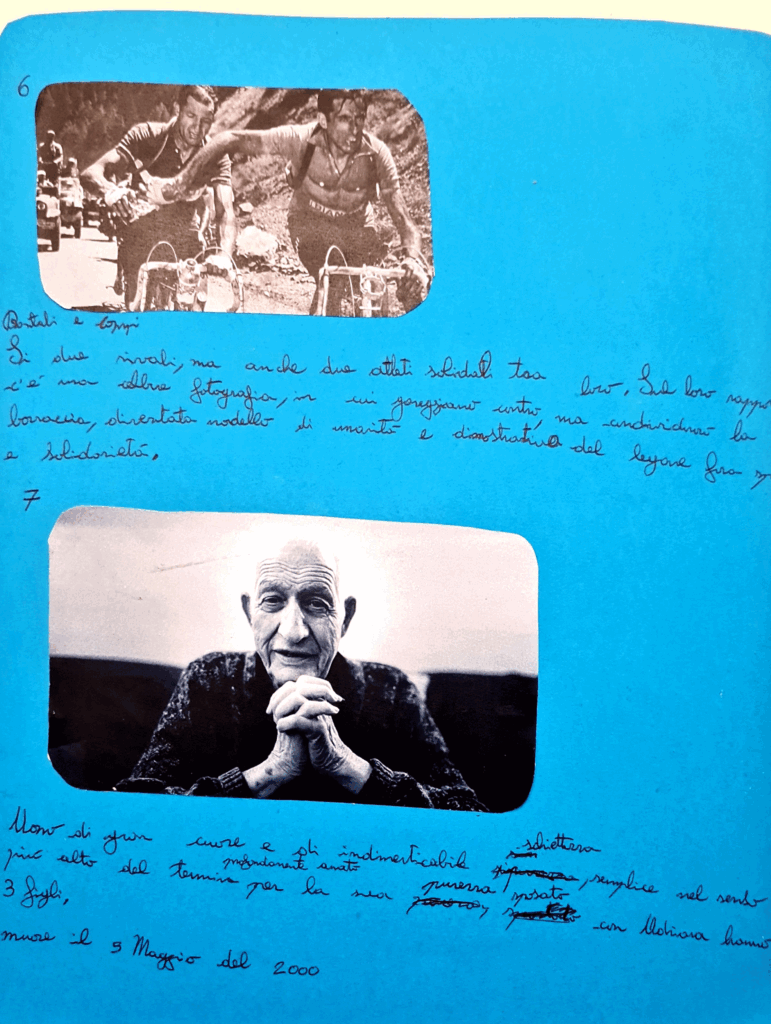 6
Bartali e Coppi
Si due rivali, ma anche due atleti solidali tra loro. Sul loro rappo
c'è una celebre fotografia, in cui gareggiano contro, ma condividono la
borraccia, diventata modello di umanità e dimostrativo del legame fra
e solidarietà.
7
Uomo di gran cuore e di indimenticabile schiettezza, semplice nel senso
più alto del termine profondamente amato per la sua purezza sposato con Adriana hanno
3 figli,
muore il 5 Maggio del 2000